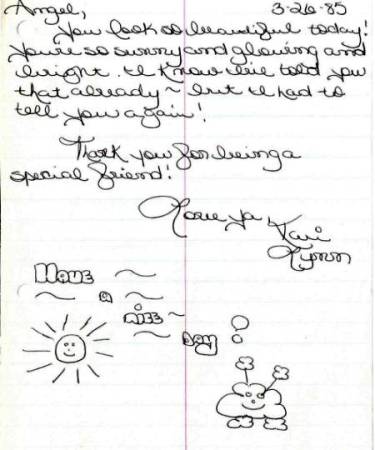 Angel, 3-26-85
You look so beautiful today!
You're so sunny and glowing and
bright. I know I've told you
that already ~ but I had to
tell you again!
Thank you for being a
special friend!
Love ya,
Kari
Lynn
Have ~
~ a ~
nice ~
~ day!